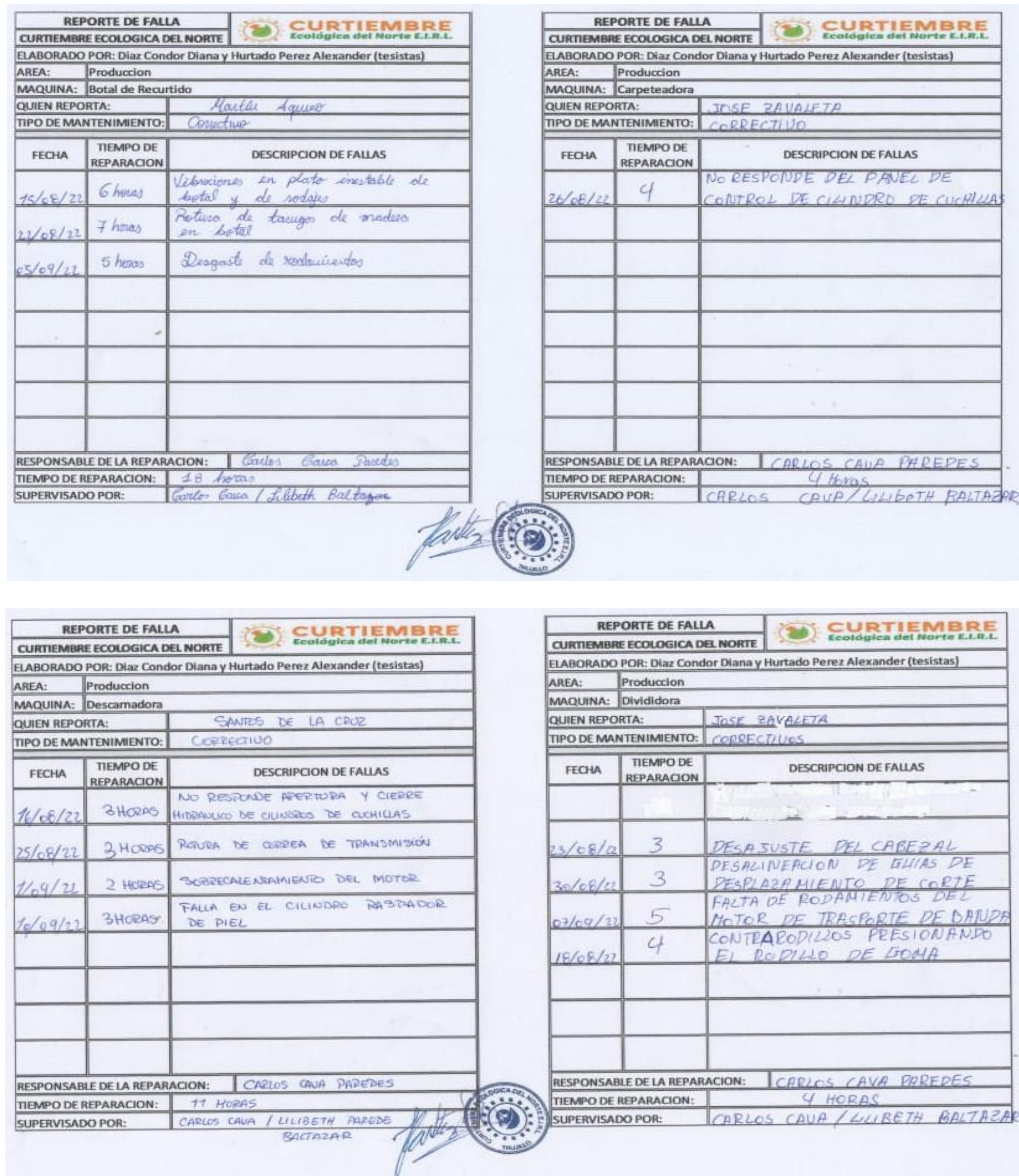 REPORTE DE FALLA
CURTIEMBRE ECOLOGICA DEL NORTE
CURTIEMBRE
Ecológica del Norte E.I.R.L.
ELABORADO POR: Diaz Condor Diana y Hurtado Perez Alexander (tesistas)
AREA: Produccion
MAQUINA: Botal de Recurtido
QUIEN REPORTA:
TIPO DE MANTENIMIENTO: Correctivo
FECHA TIEMPO DE REPARACION DESCRIPCION DE FALLAS
15/08/22 6 horas Vibraciones en plato inestable de
botal y de rodajes
22/08/22 7 horas Rotura de tarugos de madera
en botal
05/09/22 5 horas Desgaste de
RESPONSABLE DE LA REPARACION: Carlos Paredes
TIEMPO DE REPARACION: 18 horas
SUPERVISADO POR: Carlos Cava / Lilibeth Baltazar
REPORTE DE FALLA
CURTIEMBRE ECOLOGICA DEL NORTE
CURTIEMBRE
Ecológica del Norte E.I.R.L.
ELABORADO POR: Diaz Condor Diana y Hurtado Perez Alexander (tesistas)
AREA: Produccion
MAQUINA: Carpeteadora
QUIEN REPORTA: JOSE ZAVALETA
TIPO DE MANTENIMIENTO: CORRECTIVO
FECHA TIEMPO DE REPARACION DESCRIPCION DE FALLAS
26/08/22 4 NO RESPONDE DEL PANEL DE
CONTROL DE CILINDRO DE CUCHILLAS
RESPONSABLE DE LA REPARACION: CARLOS CAVA PAREDES
TIEMPO DE REPARACION: 4 Horas
SUPERVISADO POR: CARLOS CAVA / LILIBETH BALTAZAR
CURTIEMBRE ECOLOGICA DEL NORTE E.I.R.L.
TRUJILLO
REPORTE DE FALLA
CURTIEMBRE ECOLOGICA DEL NORTE
CURTIEMBRE
Ecológica del Norte E.I.R.L.
ELABORADO POR: Diaz Condor Diana y Hurtado Perez Alexander (tesistas)
AREA: Produccion
MAQUINA: Descarnadora
QUIEN REPORTA: SANTOS DE LA CROZ
TIPO DE MANTENIMIENTO: CORRECTIVO
FECHA TIEMPO DE REPARACION DESCRIPCION DE FALLAS
16/08/22 3 HORAS NO RESPONDE APERTURA Y CIERRE
HIDRAULICO DE CILINDROS DE CUCHILLAS
25/08/22 3 HORAS ROTURA DE CORREA DE TRANSMISIÓN
1/09/22 2 HORAS SOBRECALENTAMIENTO DEL MOTOR
10/09/22 3 HORAS FALLA EN EL CILINDRO RASPADOR
DE PIEL
RESPONSABLE DE LA REPARACION: CARLOS CAVA PAREDES
TIEMPO DE REPARACION: 11 HORAS
SUPERVISADO POR: CARLOS CAVA / LILIBETH PAREDE
BALTAZAR
REPORTE DE FALLA
CURTIEMBRE ECOLOGICA DEL NORTE
CURTIEMBRE
Ecológica del Norte E.I.R.L.
ELABORADO POR: Diaz Condor Diana y Hurtado Perez Alexander (tesistas)
AREA: Produccion
MAQUINA: Divididora
QUIEN REPORTA: JOSE ZAVALETA
TIPO DE MANTENIMIENTO: CORRECTIVOS
FECHA TIEMPO DE REPARACION DESCRIPCION DE FALLAS
23/08/22 3 DESAJUSTE DEL CABEZAL
30/08/22 3 DESALINEACION DE GUIAS DE
DESPLAZAMIENTO DE CORTE
07/09/22 5 FALTA DE RODAMIENTOS DEL
MOTOR DE TRASPORTE DE BANDA
18/08/22 4 CONTRARODILLOS PRESIONANDO
EL RODILLO DE GOMA
RESPONSABLE DE LA REPARACION: CARLOS CAVA PAREDES
TIEMPO DE REPARACION: 4 HORAS
SUPERVISADO POR: CARLOS CAVA / LILIBETH BALTAZAR